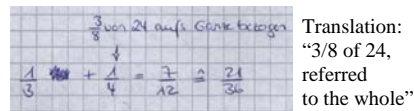 3/8 von 24 aufs Ganze bezogen
↓
1/3 + 1/4 = 7/12 ≙ 21/36
Translation:
“3/8 of 24,
referred
to the whole”